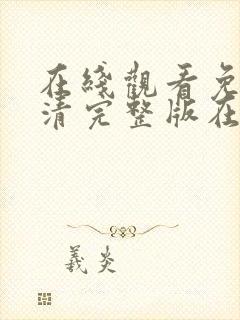 在綫觀看免
清完整版在
義炎